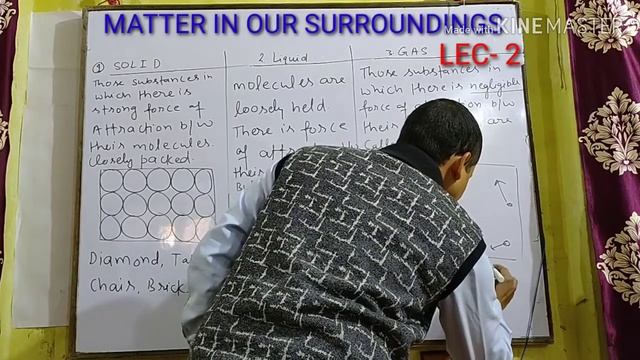 MATTER IN OUR SURROUNDINGS
Made with KINEMASTER
LEC- 2
① SOLID
Those substances in
which there is
strong force of
Attraction b/w
their molecules.
closely packed.
Diamond,
Chair, Brick
2 Liquid
molecules are
loosely held
There is force
of
3 GAS
Those substances in
which there is negligible
force of b/w
their are